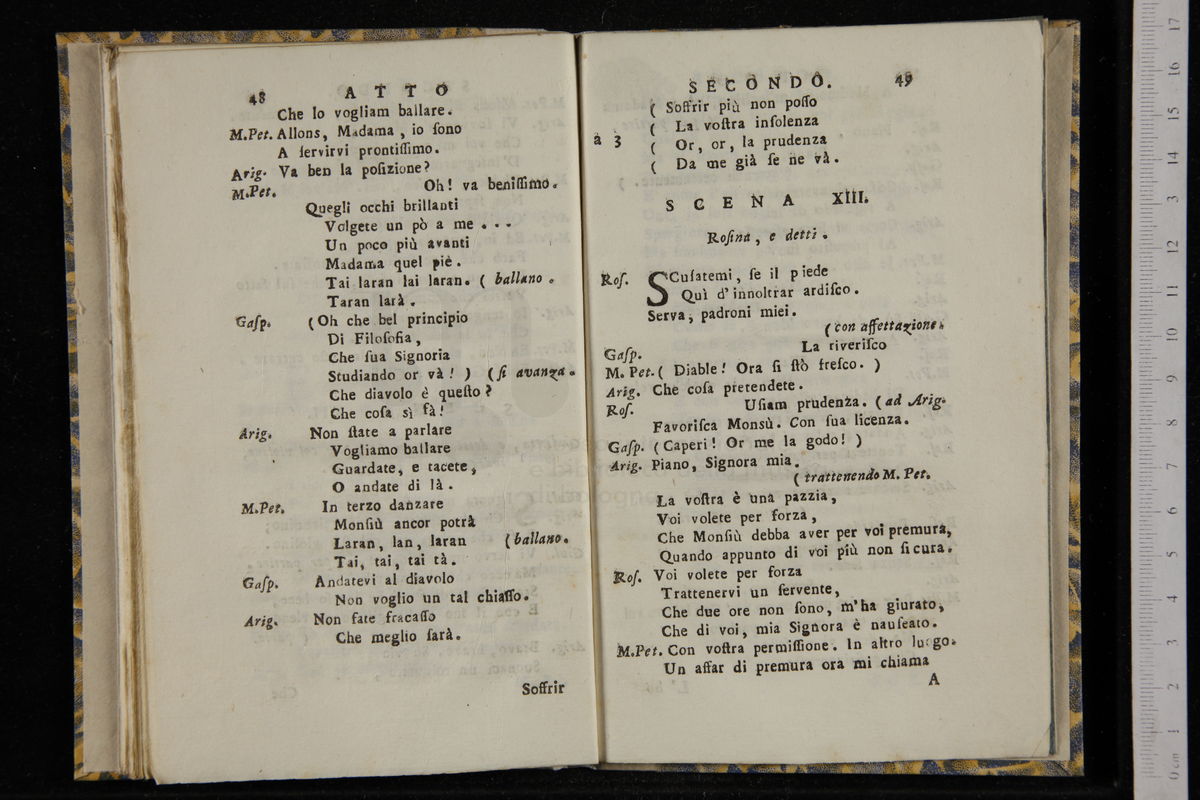 48 ATTO
Che lo vogliam ballare.
M.Pet. Allons, Madama, io ſono
A ſervirvi prontiſſimo.
Arig. Va ben la poſizione?
M.Pet. Oh! va beniſſimo.
Quegli occhi brillanti
Volgete un pò a me . . .
Un poco più avanti
Madama quel piè.
Tai laran lai laran. ( ballano.
Taran larà.
Gaſp. (Oh che bel principio
Di Filoſofia,
Che ſua Signoria
Studiando or và! ) (ſi avanza.
Che diavolo è queſto?
Che coſa sì fà!
Arig. Non ſtate a parlare
Vogliamo ballare
Guardate, e tacete,
O andate di là.
M.Pet. In terzo danzare
Monſiù ancor potrà
Laran, lan, laran (ballano.
Tai, tai, tai tà.
Gaſp. Andatevi al diavolo
Non voglio un tal chiaſſo.
Arig. Non fate fracaſſo
Che meglio ſarà.
Soffrir
SECONDO. 49
( Soffrir più non poſſo
( La voſtra inſolenza
à 3 ( Or, or, la prudenza
( Da me già ſe ne và.
SCENA XIII.
Roſina, e detti.
Roſ. SCuſatemi, ſe il piede
Quì d'innoltrar ardiſco.
Serva, padroni miei.
(con affettazione.
Gaſp. La riveriſco
M. Pet. ( Diable! Ora ſi ſtò freſco. )
Arig. Che coſa pretendete.
Roſ. Uſiam prudenza. (ad Arig.
Favoriſca Monsù. Con ſua licenza.
Gaſp. (Caperi! Or me la godo! )
Arig. Piano, Signora mia.
( trattenendo M. Pet.
La voſtra è una pazzia,
Voi volete per forza,
Che Monſiù debba aver per voi premura,
Quando appunto di voi più non ſi cura.
Roſ. Voi volete per forza
Trattenervi un ſervente,
Che due ore non ſono, m'ha giurato,
Che di voi, mia Signora è nauſeato.
M.Pet. Con voſtra permiſſione. In altro luogo.
Un affar di premura ora mi chiama
A